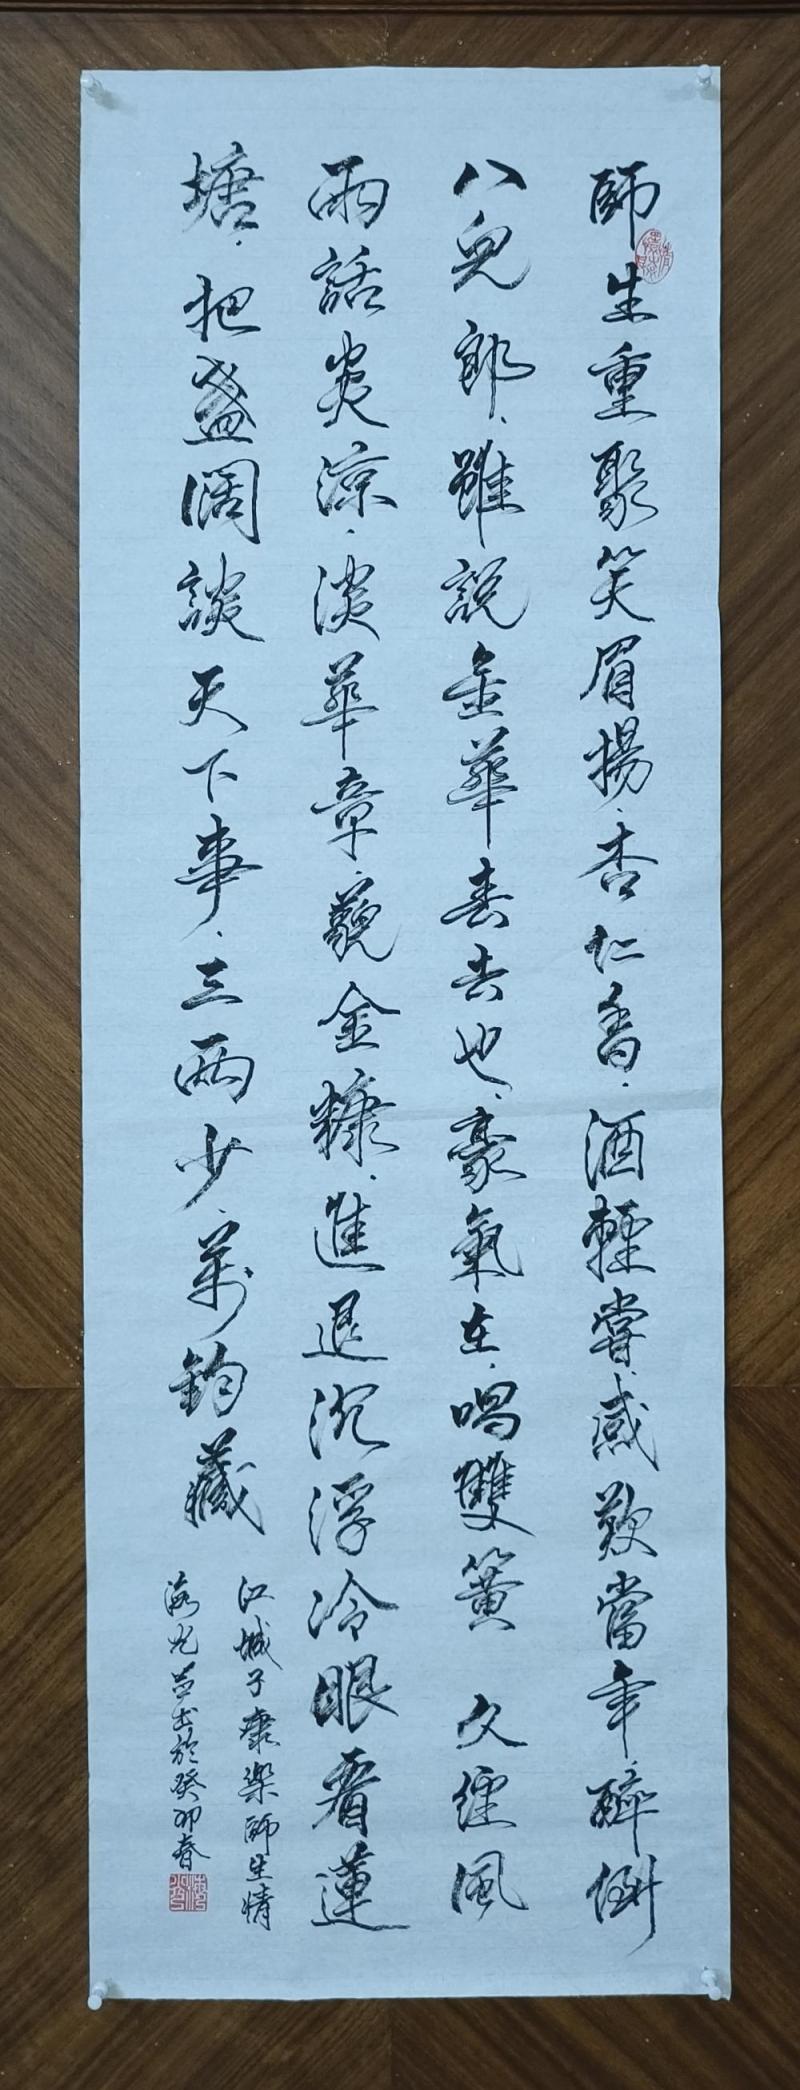 師生重聚笑眉揚、杏仁香、酒輕嘗、感歎當年、醉倒
八兒郎、雖說金華春去也、豪氣在、唱雙簧 久經風
雨話炎涼、淡華章、藐金糠、進退沉浮冷眼看蓮
塘、把盞闊談天下事、三兩少、萬鈞藏
江城子康樂師生情
海光並書於癸卯春